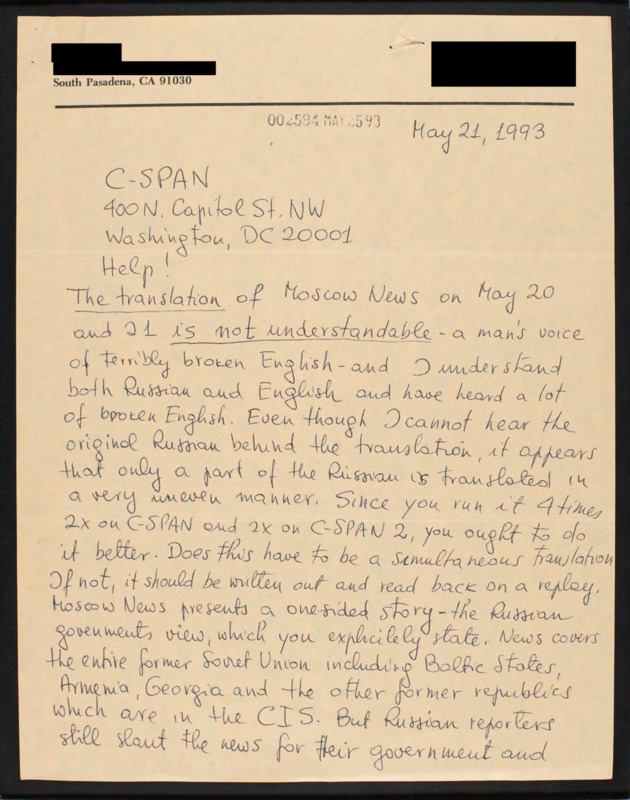 South Pasadena, CA 91030
002594 MAY 2593
May 21, 1993
C-SPAN
400 N. Capitol St. NW
Washington, DC 20001
Help!
The translation of Moscow News on May 20
and 21 is not understandable - a man's voice
of terribly broken English - and I understand
both Russian and English and have heard a lot
of broken English. Even though I cannot hear the
original Russian behind the translation, it appears
that only a part of the Russian is translated in
a very uneven manner. Since you run it 4 times
2x on C-SPAN and 2x on C-SPAN 2, you ought to do
it better. Does this have to be a simultaneous translation
If not, it should be written out and read back on a replay.
Moscow News presents a one-sided story - the Russian
govenments view, which you explicitely state. News covers
the entire former Soviet Union including Baltic States,
Armenia, Georgia and the other former republics
which are in the CIS. But Russian reporters
still slant the news for their government and